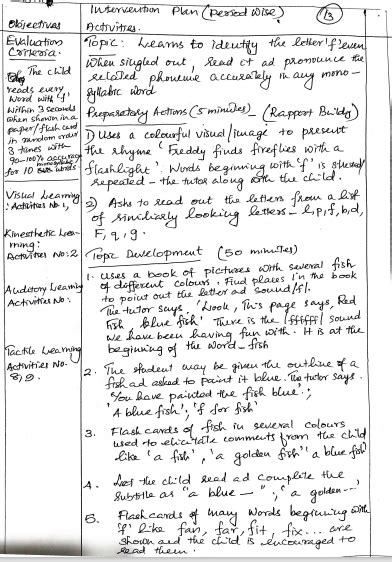 Intervention Plan (Period Wise)
1/3
Objectives
Activities.
Evaluation
Criteria:
The child
reads every
word with 'f'
within 3 seconds
when shown in a
paper/flash card
in random order
3 times with
90-100% accuracy
for 10 words
Visual Learning
Activities No 1,
Kinesthetic Lear-
ning:
Activities No: 2
Auditory Learning
Activities No:
Tactile Learning
Activities No.
8, 9.
Topic: Learns to identify the letter 'f' even
when singled out, read ct ad pronounce the
related phoneme accurately in any mono-
syllabic word
Preparatory Actions (5 minutes) - (Rapport Building)
1) Uses a colourful visual/image to present
the rhyme 'Freddy finds fireflies with a
flashlight'. Words beginning with 'f' is
repeated - the tutor along with the child.
2) Asks to read out the letters from a list
of similarly looking letters - l, p, f, b, d,
F, q, g.
Topic Development (50 minutes)
1. Uses a book of pictures with several fish
of different colours. Find places in the book
to point out the letter ad sound /f/.
The tutor says 'Look, This page says, Red
fish, blue fish' There is the /ffffff/ sound
we have been having fun with. It is at the
beginning of the word - fish
2. The student may be given the outline of a
fish ad asked to paint it blue. The tutor says.
'You have painted the fish blue.';
'A blue fish'; 'f for fish'
3. Flash cards of fish in several colours
used to comments from the child
like 'a fish', 'a golden fish' 'a blue fish'
4. Let the child read ad complete the
subtitle as "a blue — "; 'a golden---'
5. Flashcards of many words beginning with
'f' like fan, far, fit, fix... are
shown and the child is encouraged to
read them.